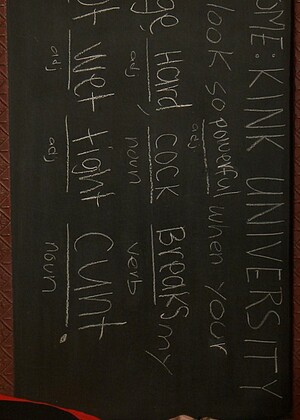 OME: KINK UNIVERSITY
look so powerful when your
adj
Hard, cock Breaks my
adj noun verb
wet tight cunt.
adj adj noun